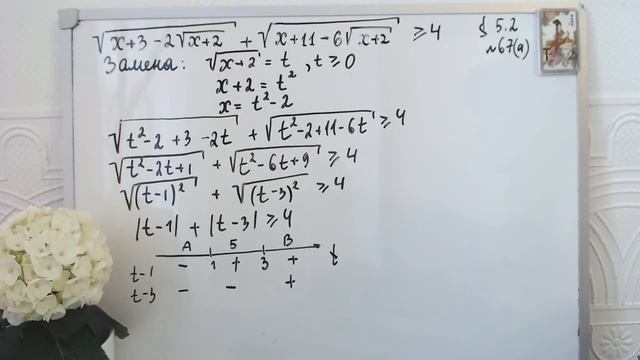 √(x+3-2√(x+2)) + √(x+11-6√(x+2)) ≥ 4
§ 5.2
№67(а)
Замена: √(x+2) = t, t ≥ 0
x+2 = t²
x = t²-2
√(t²-2+3-2t) + √(t²-2+11-6t) ≥ 4
√(t²-2t+1) + √(t²-6t+9) ≥ 4
√((t-1)²) + √((t-3)²) ≥ 4
|t-1| + |t-3| ≥ 4
А Б В
t-1 - 1 + 3 + t
t-3 - - +